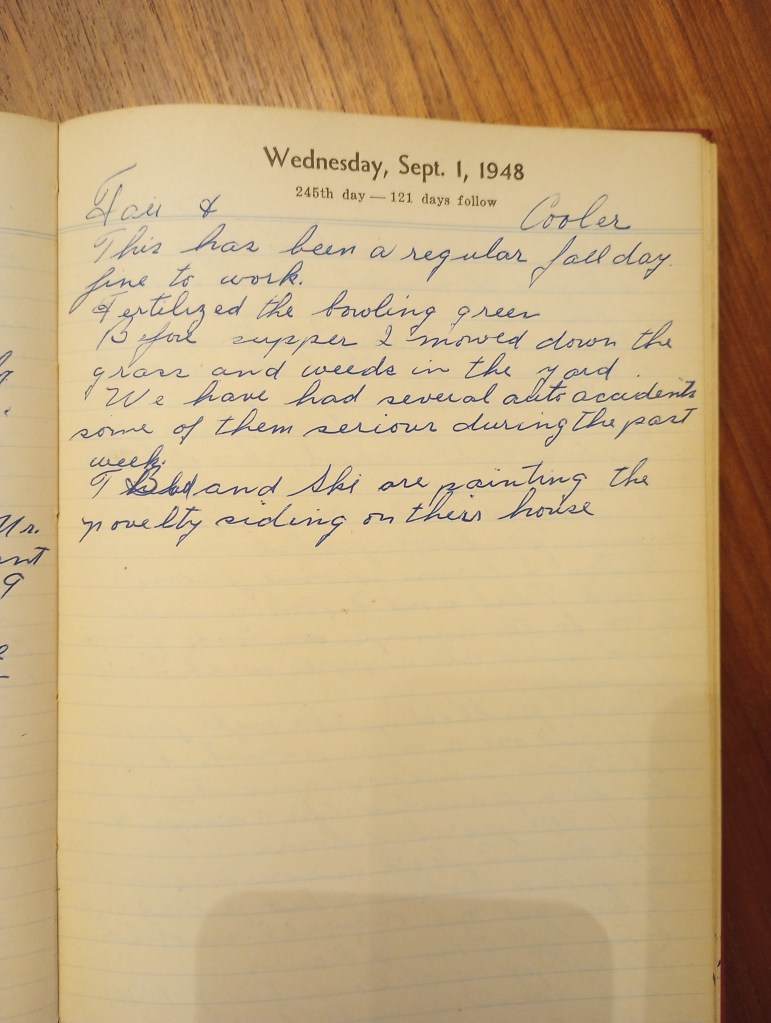 Wednesday, Sept. 1, 1948
245th day — 121 days follow
Fair & Cooler
This has been a regular fall day.
fine to work.
Fertilized the bowling green
Before supper I mowed down the
grass and weeds in the yard.
We have had several auto accidents
some of them serious during the past
week.
and Ski are painting the
novelty siding on their house
Mr.
9